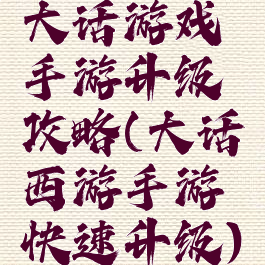 大话游戏
手游升级
攻略(大话
西游手游
快速升级)